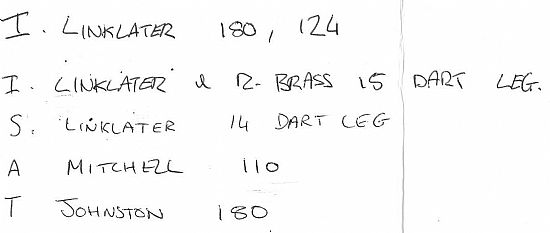 I. LINKLATER 180, 124
I. LINKLATER & R. BRASS 15 DART LEG.
S. LINKLATER 14 DART LEG
A MITCHELL 110
T JOHNSTON 180